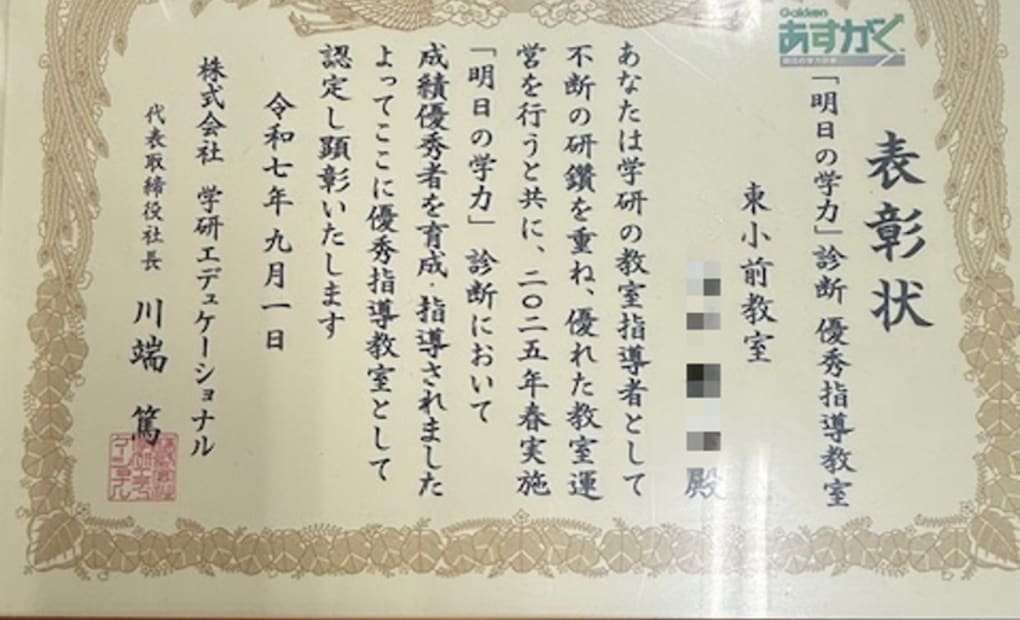 Gakken
あすがく
表彰状
「明日の学力」診断 優秀指導教室
東小前教室
殿
あなたは学研の教室指導者として
不断の研鑽を重ね、優れた教室運
営を行うと共に、二〇二五年春実施
「明日の学力」診断において
成績優秀者を育成・指導されました
よってここに優秀指導教室として
認定し顕彰いたします
令和七年九月一日
株式会社 学研エデュケーショナル
代表取締役社長 川端 篤